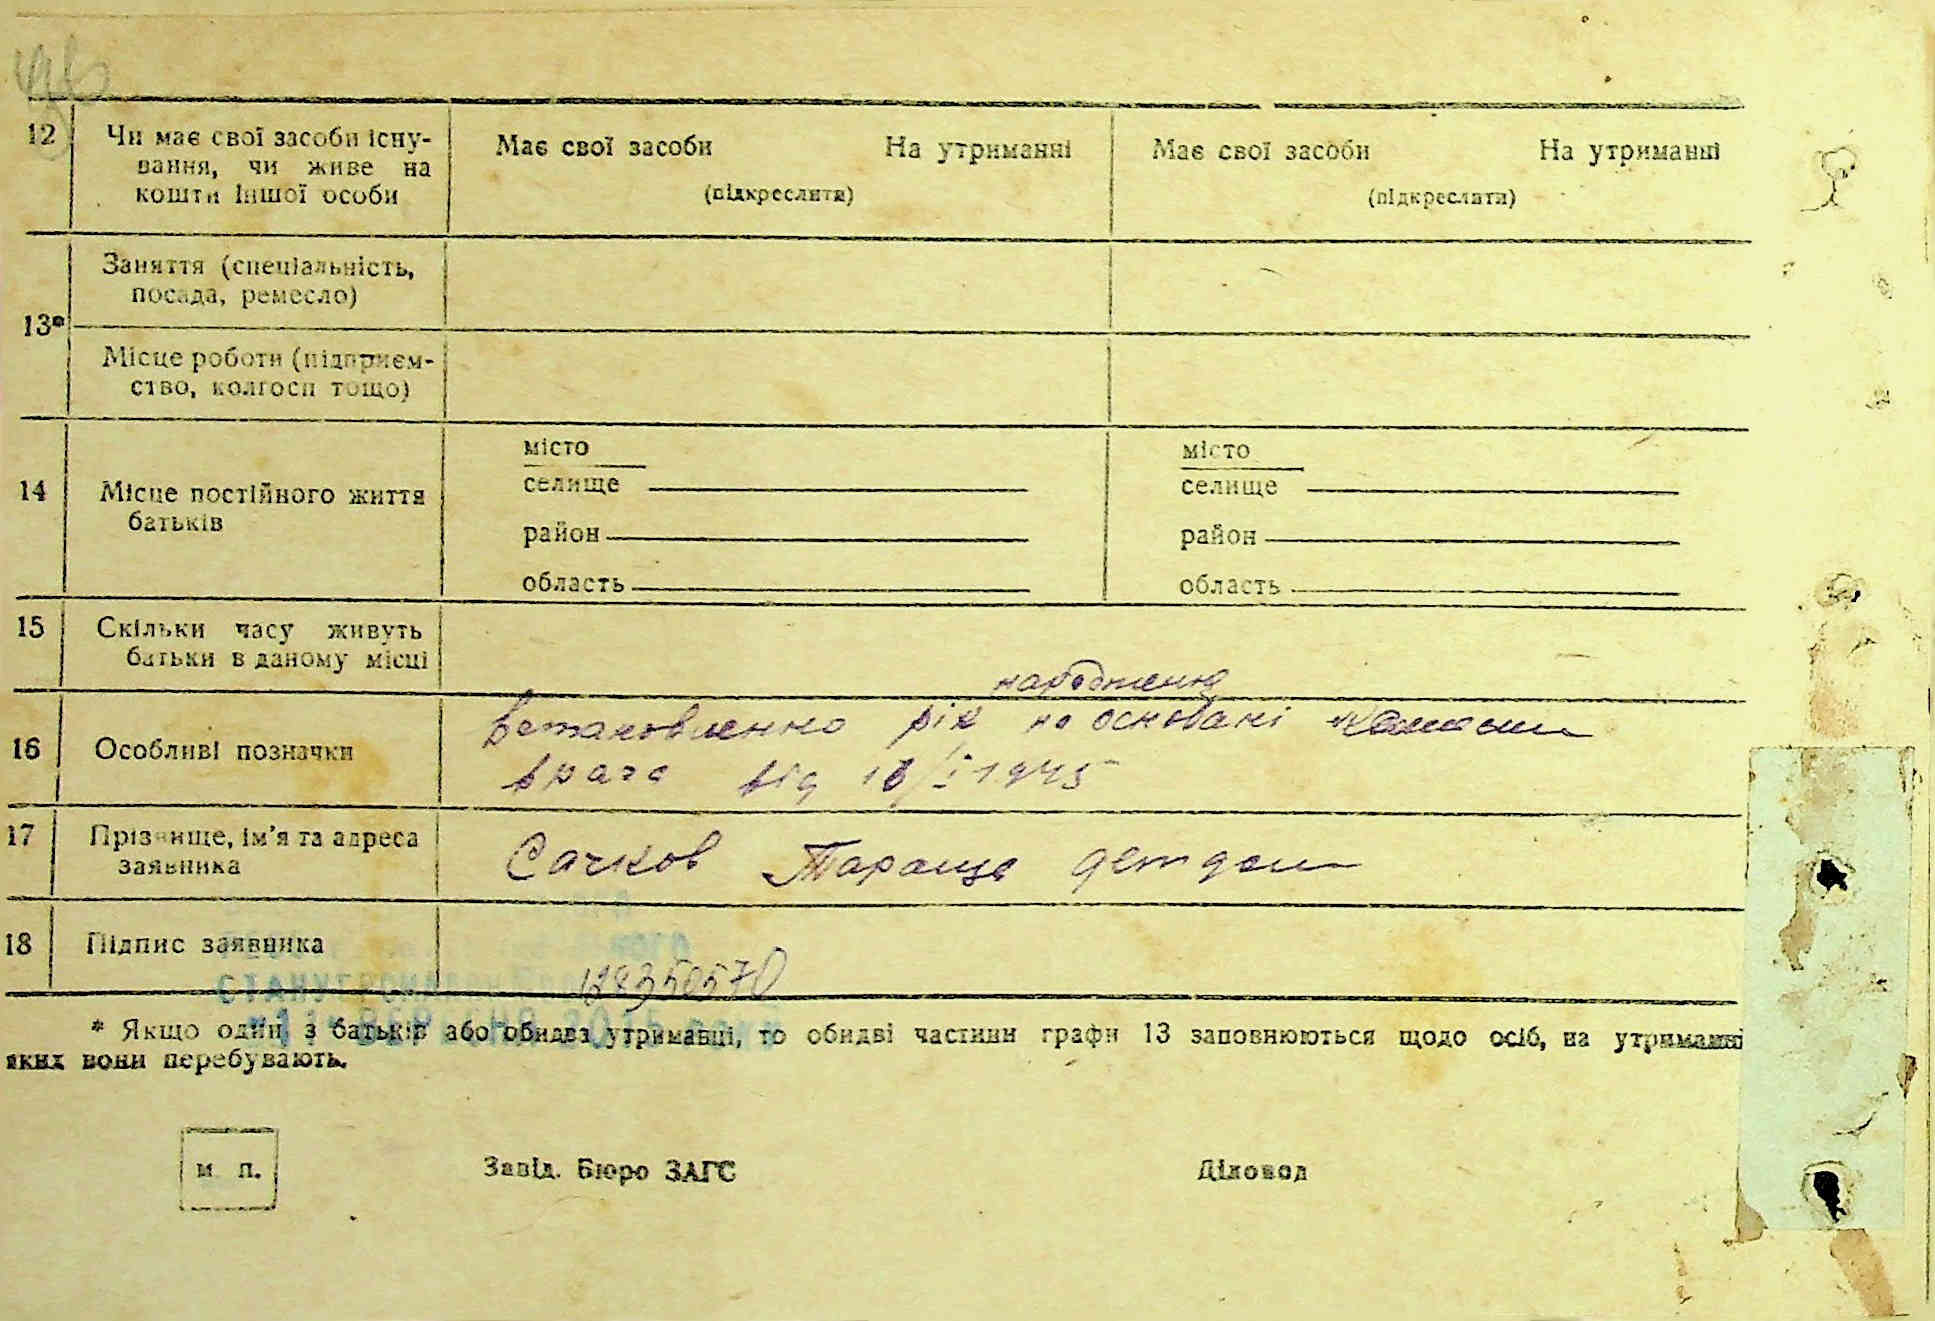 12 Чи має свої засоби існу-
вання, чи живе на
кошти іншої особи
Має свої засоби На утриманні
(підкреслити)
Має свої засоби На утриманні
(підкреслити)
13* Заняття (спеціальність,
посада, ремесло)
Місце роботи (підприєм-
ство, колгосп тощо)
14 Місце постійного життя
батьків
місто
селище
район
область
місто
селище
район
область
15 Скільки часу живуть
батьки в даному місці
16 Особливі позначки
народження
Встановленно рік на основані
врача від 18/I 1945
17 Прізвище, ім'я та адреса
заявника
Сачков Тараща детдом
18 Підпис заявника
128350570
* Якщо один з батьків або обидва утриманці, то обидві частини графи 13 заповнюються щодо осіб, на утриманні
яких вони перебувають.
м. п.
Завід. Бюро ЗАГС
Діловод